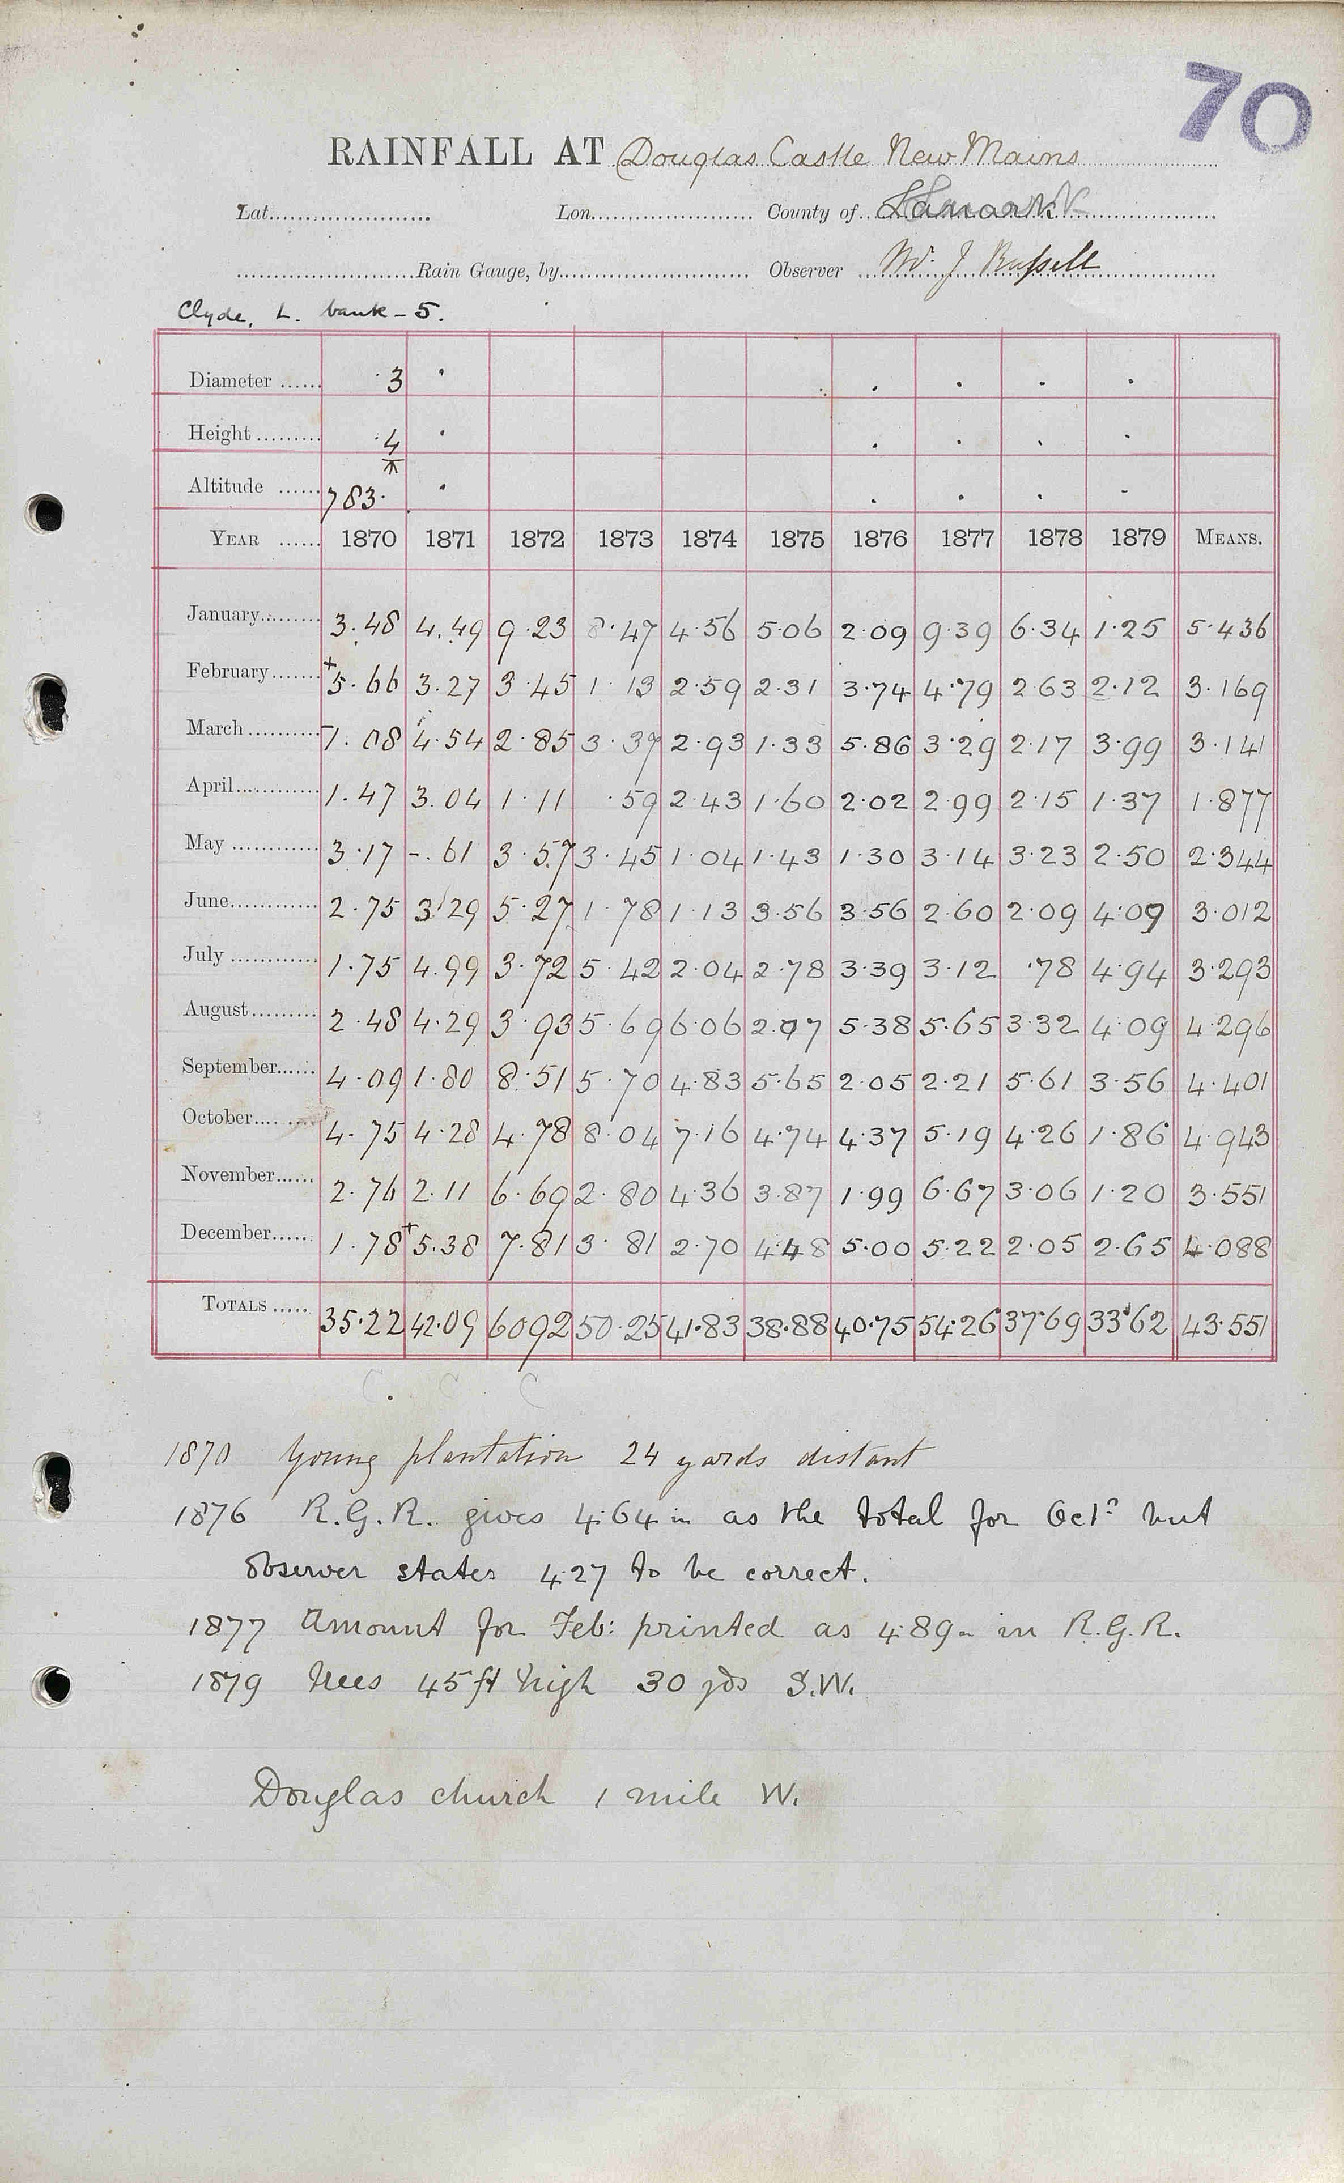 70
RAINFALL AT Douglas Castle New Mains
Lat. Lon. County of Lanark
Rain Gauge, by Observer Mr. J Russell
Clyde, L. bank - 5.
Diameter 3
Height 4
Altitude 783.
YEAR 1870 1871 1872 1873 1874 1875 1876 1877 1878 1879 MEANS.
January 3.48 4.49 9.23 8.47 4.56 5.06 2.09 9.39 6.34 1.25 5.436
February +5.66 3.27 3.45 1.13 2.59 2.31 3.74 4.79 2.63 2.12 3.169
March 1.08 4.54 2.85 3.37 2.93 1.33 5.86 3.29 2.17 3.99 3.141
April 1.47 3.04 1.11 .59 2.43 1.60 2.02 2.99 2.15 1.37 1.877
May 3.17 -.61 3.57 3.45 1.04 1.43 1.30 3.14 3.23 2.50 2.344
June 2.75 3.29 5.27 1.78 1.13 3.56 3.56 2.60 2.09 4.09 3.012
July 1.75 4.99 3.72 5.42 2.04 2.78 3.39 3.12 .78 4.94 3.293
August 2.48 4.29 3.93 5.69 6.06 2.07 5.38 5.65 3.32 4.09 4.296
September 4.09 1.80 8.51 5.70 4.83 5.65 2.05 2.21 5.61 3.56 4.401
October 4.75 4.28 4.78 8.04 7.16 4.74 4.37 5.19 4.26 1.86 4.943
November 2.76 2.11 6.69 2.80 4.36 3.87 1.99 6.67 3.06 1.20 3.551
December 1.78 +5.38 7.81 3.81 2.70 4.48 5.00 5.22 2.05 2.65 4.088
TOTALS 35.22 42.09 60.92 50.25 41.83 38.88 40.75 54.26 37.69 33.62 43.551
1870 Young plantation 24 yards distant
1876 R.G.R. gives 4.64 in as the total for Octr but
observer states 4.27 to be correct.
1877 Amount for Feb: printed as 4.89 in in R.G.R.
1879 Trees 45 ft high 30 yds S.W.
Douglas church 1 mile W.